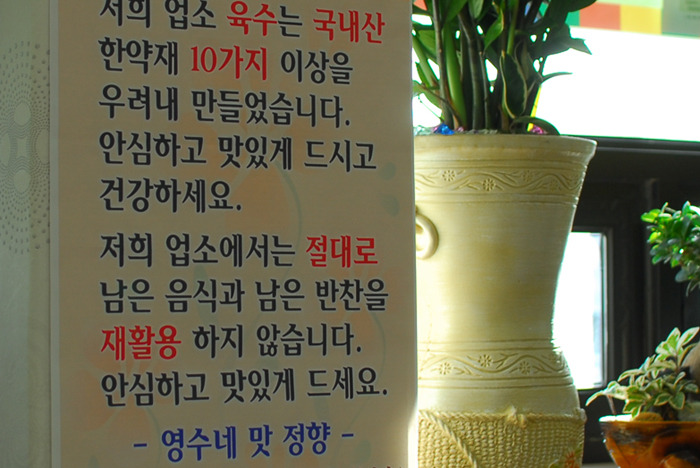 저희 업소 육수는 국내산
한약재 10가지 이상을
우려내 만들었습니다.
안심하고 맛있게 드시고
건강하세요.
저희 업소에서는 절대로
남은 음식과 남은 반찬을
재활용 하지 않습니다.
안심하고 맛있게 드세요.
- 영수네 맛 정향 -